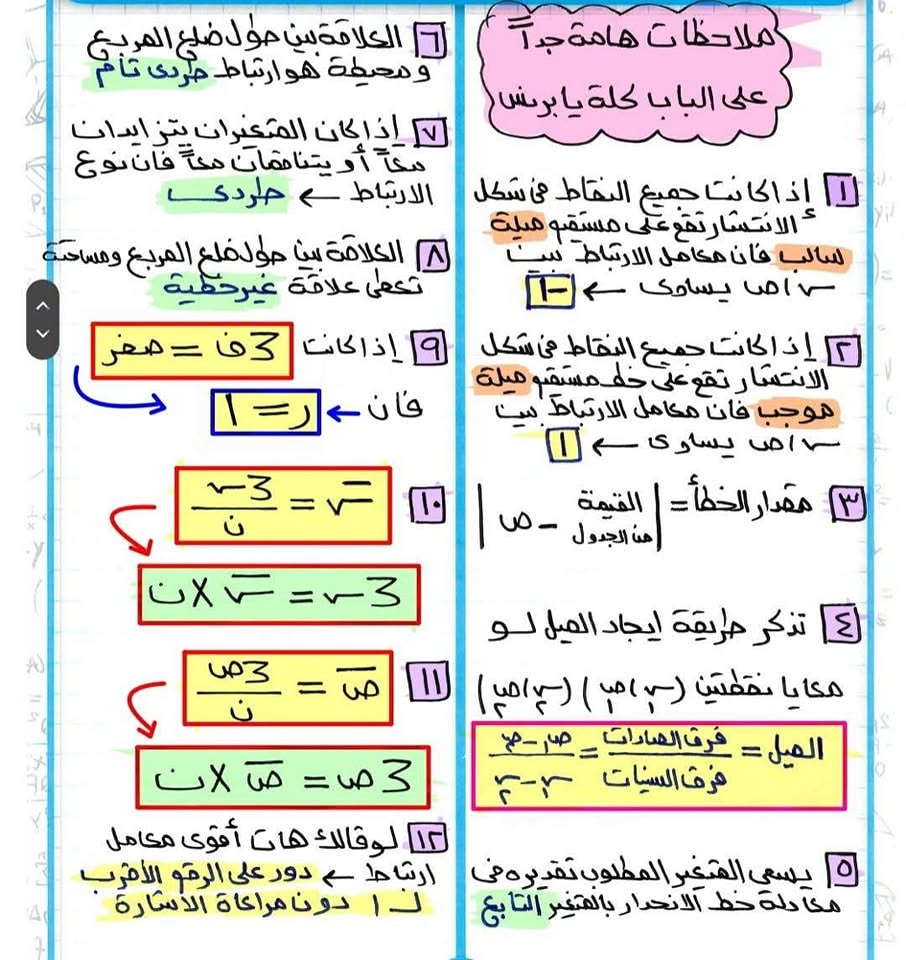 ملاحظات هامة جداً
على الباب كلة يا برنس
١ إذا كانت جميع النقاط فى شكل
الانتشار تقع على مستقيم ميلة
سالب فان معامل الارتباط بين
س ، ص يساوى ← -١
٢ إذا كانت جميع النقاط فى شكل
الانتشار تقع على خط مستقيم ميلة
موجب فان معامل الارتباط بين
س ، ص يساوى ← ١
٣ مقدار الخطأ = | القيمة من الجدول - ص |
٤ تذكر طريقة ايجاد الميل لو
معايا نقطتين (س١ ، ص١) (س٢ ، ص٢)
الميل = فرق الصادات / فرق السينات = ص١ - ص٢ / س١ - س٢
٥ يسمى المتغير المطلوب تقديره فى
معادلة خط الانحدار بالمتغير التابع
٦ العلاقة بين طول ضلع المربع
ومحيطة هو ارتباط طردى تام
٧ إذا كان المتغيران يتزايدان
معاً أو يتناقصان معاً فان نوع
الارتباط ← طردى
٨ العلاقة بين طول ضلع المربع ومساحتة
تعطى علاقة غير خطية
٩ إذا كانت مجـ ف = صفر
فان ← ر = ١
١٠ س̄ = مجـ س / ن
مجـ س = س̄ × ن
١١ ص̄ = مجـ ص / ن
مجـ ص = ص̄ × ن
١٢ لو قالك هات أقوى معامل
ارتباط ← دور على الرقم الأقرب
لـ ١ دون مراعاة الاشارة